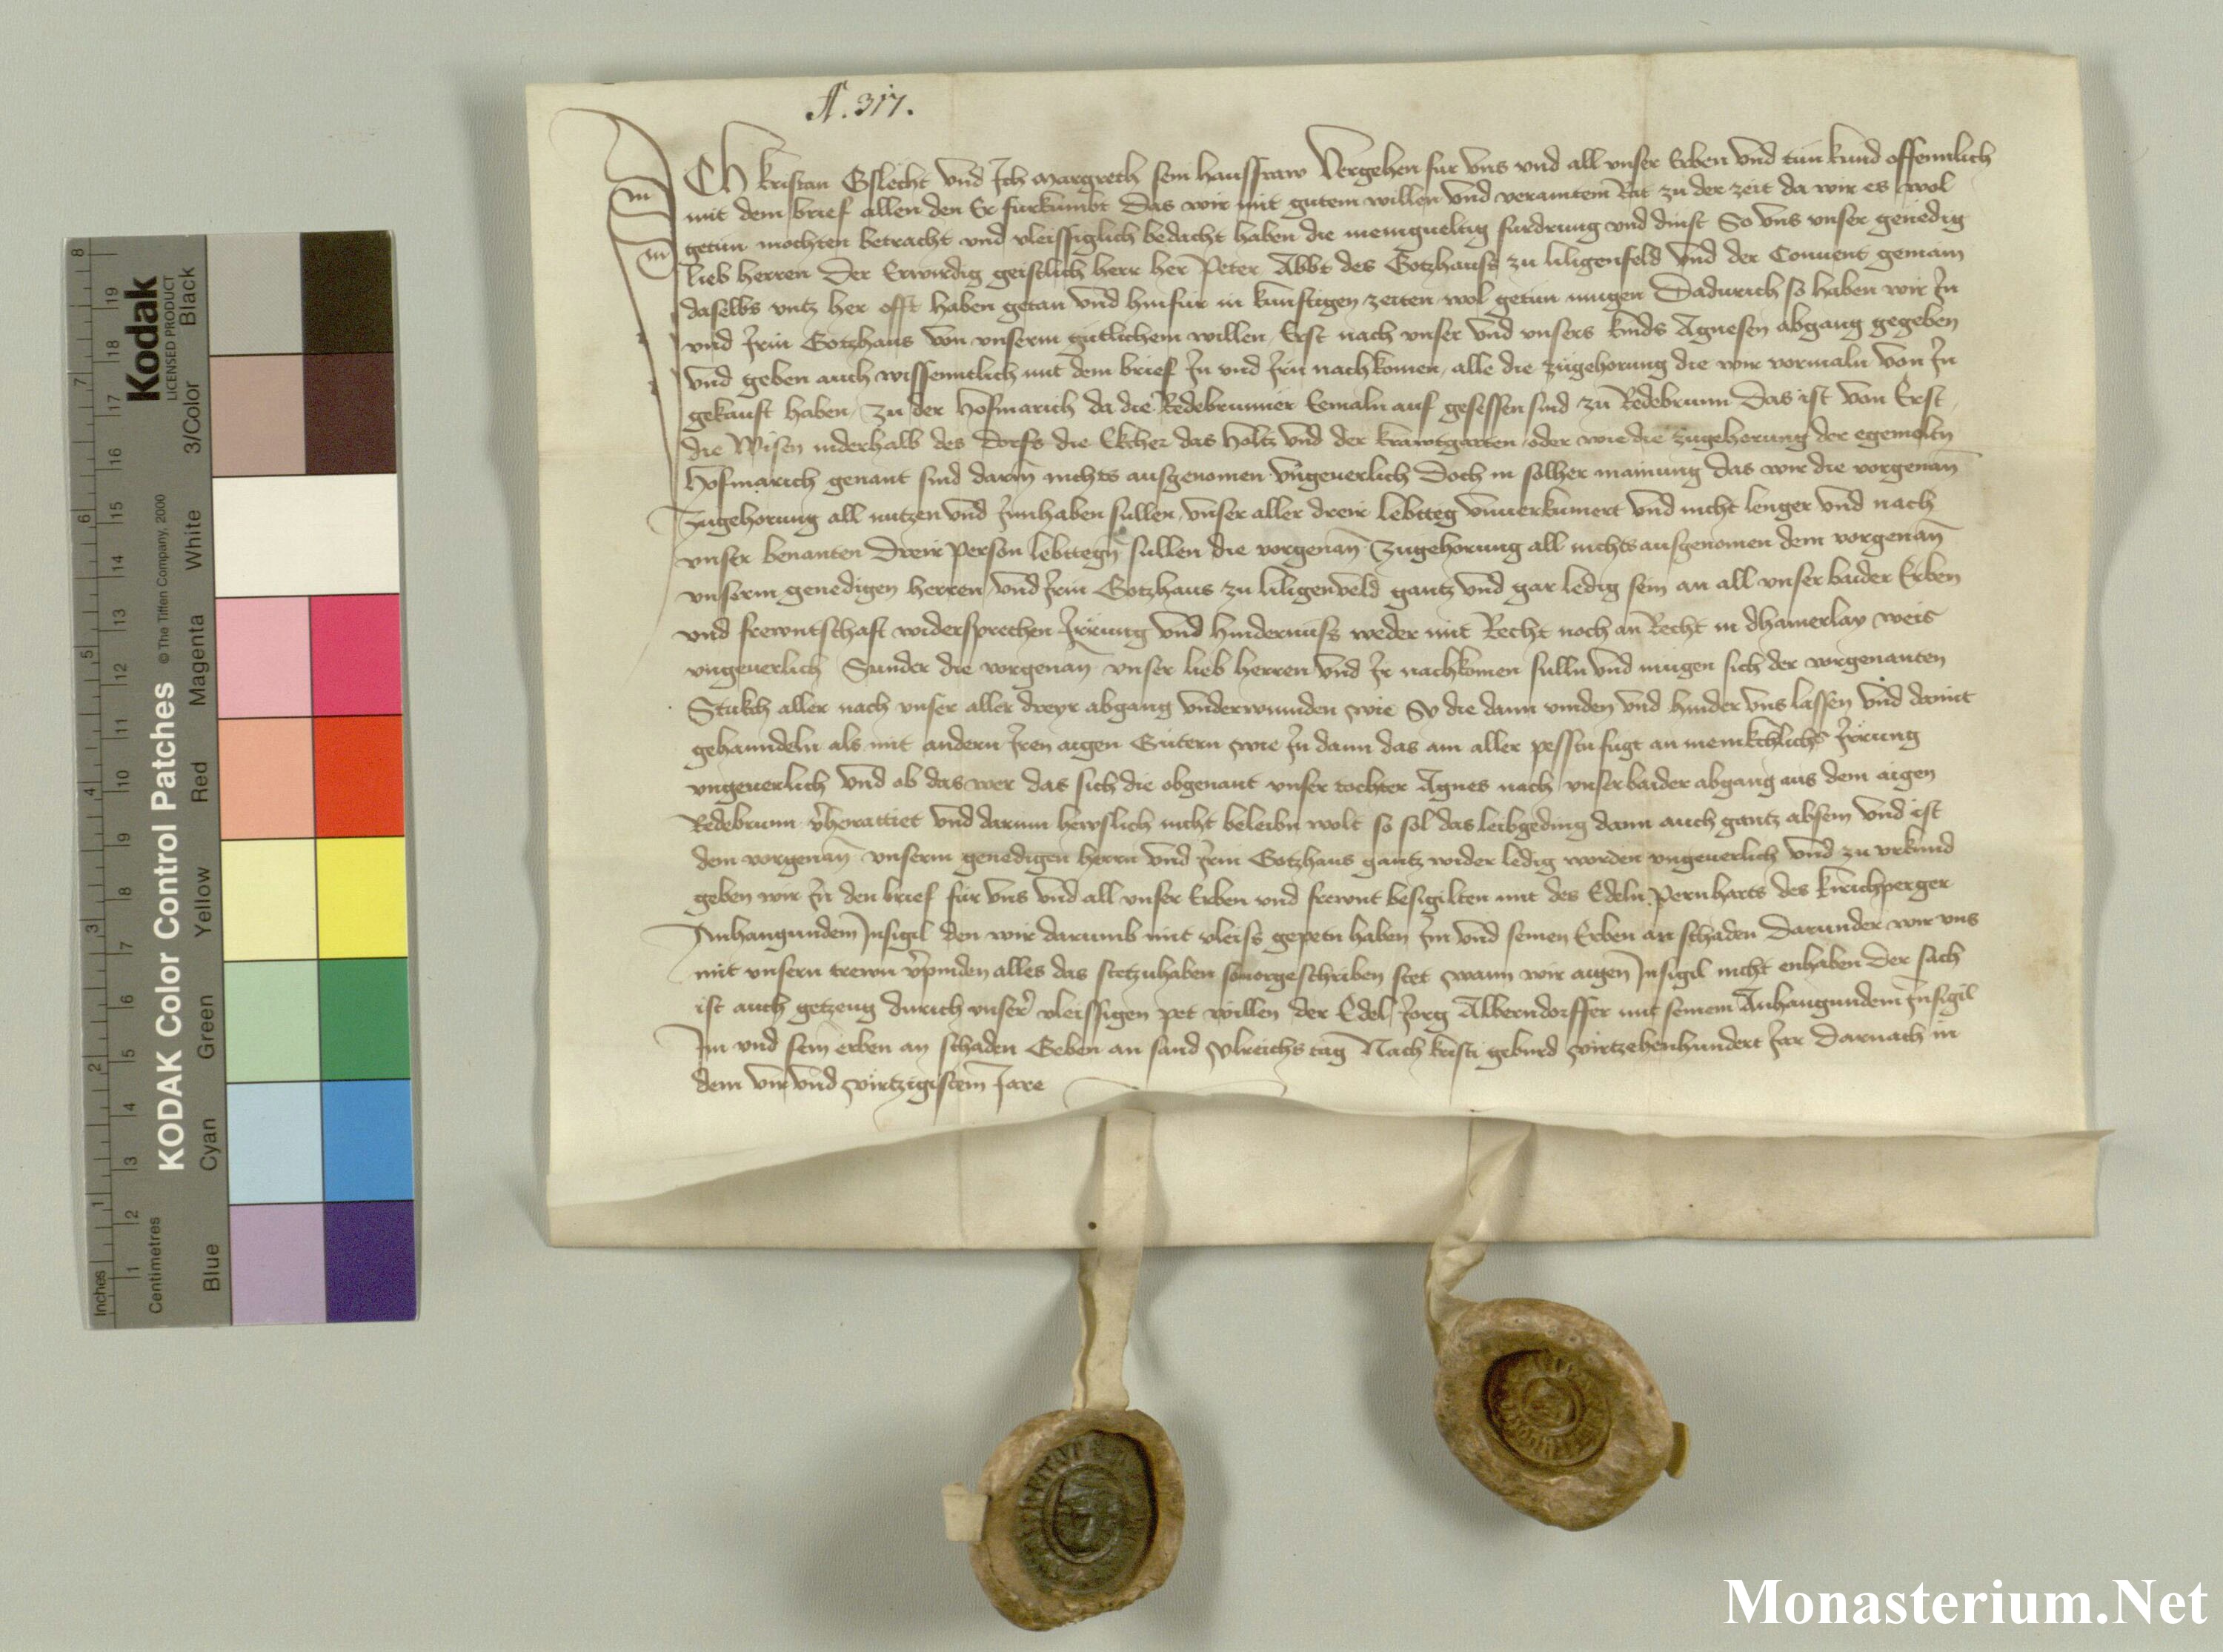 A. 317.
ICh kristan Gslecht vnd Ich margreth sein hausfraw Vergehen fur vns vnd all vnser Erben vnd tun kund offennlich
mit dem brief allen den Er furkumbt Das wir mit gutem willen vnd veraintem Rat zu der zeit da wir es wol
getun mochten betracht vnd vleissiglich bedacht haben die menigueltig furdrung vnd dinst So vns vnser genedig
lieb herren Der Erwirdig geistlich herr her Peter Abbt des Gotzhauss zu liligenfeld vnd der Conuent gemain
daselbs vntz her offt haben getan vnd hinfur in kunftigen zeiten wol getun mugen Dadurich so haben wir In
vnd Irm Gotzhaus von vnserm gutlichem willen Erst nach vnser vnd vnsers kinds Agnesen abgang gegeben
vnd geben auch wissenntlich mit dem brief In vnd Irn nachkomen alle die zugehorung die wir vormaln von In
gekauft haben zu der Hofmarich da die Redebrunner Eemaln auf gesessen sind zu Redebrunn Das ist von Erst
die Wisen niderhalb des dorfs die Ekcher das holtz vnd der krawtgarten oder wie die zugehorung der egemeltn
Hofmarich genant sind darin nichts ausgenomen vngeuerlich Doch in solher mainung das wir die vorgenan
Zugehorung all nutzen vnd Innhaben sullen vnser aller dreir lebtteg vnuerkumert vnd nicht lenger vnd nach
vnser benanten Dreir person lebttegn sullen die vorgenan Zugehorung all nichts ausgenomen dem vorgenan
vnserm genedigen herren vnd Irm Gotzhaus zu liligenveld gantz vnd gar ledig sein an all vnser baider Erben
vnd frewntschaft widersprechen Irrung vnd hindernuss weder mit Recht noch an Recht in dhainerlay weis
vngeuerlich Sunder die vorgenan vnser lieb herren vnd Ir nachkomen sulln vnd mugen sich der vorgenanten
Stukch aller nach vnser aller dreyr abgang vnderwinnden wie Sy die dann vinden vnd hinder vns lassen vnd damit
gehanndeln als mit andern Iren aigen Gutern wie In dann das am aller pesstn fugt an menikchlichs Irrung
vngeuerlich vnd ob das wer das sich die obgenant vnser tochter Agnes nach vnser baider abgang aus dem aigen
Redebrunn verheirattiet vnd darinn hewslich nicht beleibn wolt so sol das leibgeding dann auch gantz absein vnd ist
dem vorgenan vnserm genedigen herrn vnd Irm Gotzhaus gantz wider ledig worden vngeuerlich vnd zu vrkund
geben wir In den brief fur vns vnd all vnser Erben vnd frewnt besigilten mit des Edeln Pernharts des kirichperger
Anhangundem Insigil den wir darumb mit vleiss gepetn haben Im vnd seinen Erben an schaden Darunder wir vns
mit vnsern trewn verpinden alles das stetzuhaben so vorgeschriben stet wann wir aigen Insigil nicht enhaben Der sach
ist auch getzeug durich vnser vleissigen pet willen der Edel Jorg Alberndorffer mit seinem Anhangundem Insigil
Im vnd sein erben an schaden Geben an sand vlreichs tag Nach kristi geburd virtzehenhundert Jar Darnach in
dem vir vnd virtzigistem Jare
Kodak
LICENSED PRODUCT
KODAK Color Control Patches
© The Tiffen Company, 2000
Black
3/Color
White
Magenta
Red
Yellow
Green
Cyan
Blue
Inches
Centimetres
1 2 3 4 5 6 7 8
1 2 3 4 5 6 7 8 9 10 11 12 13 14 15 16 17 18 19
Monasterium.Net